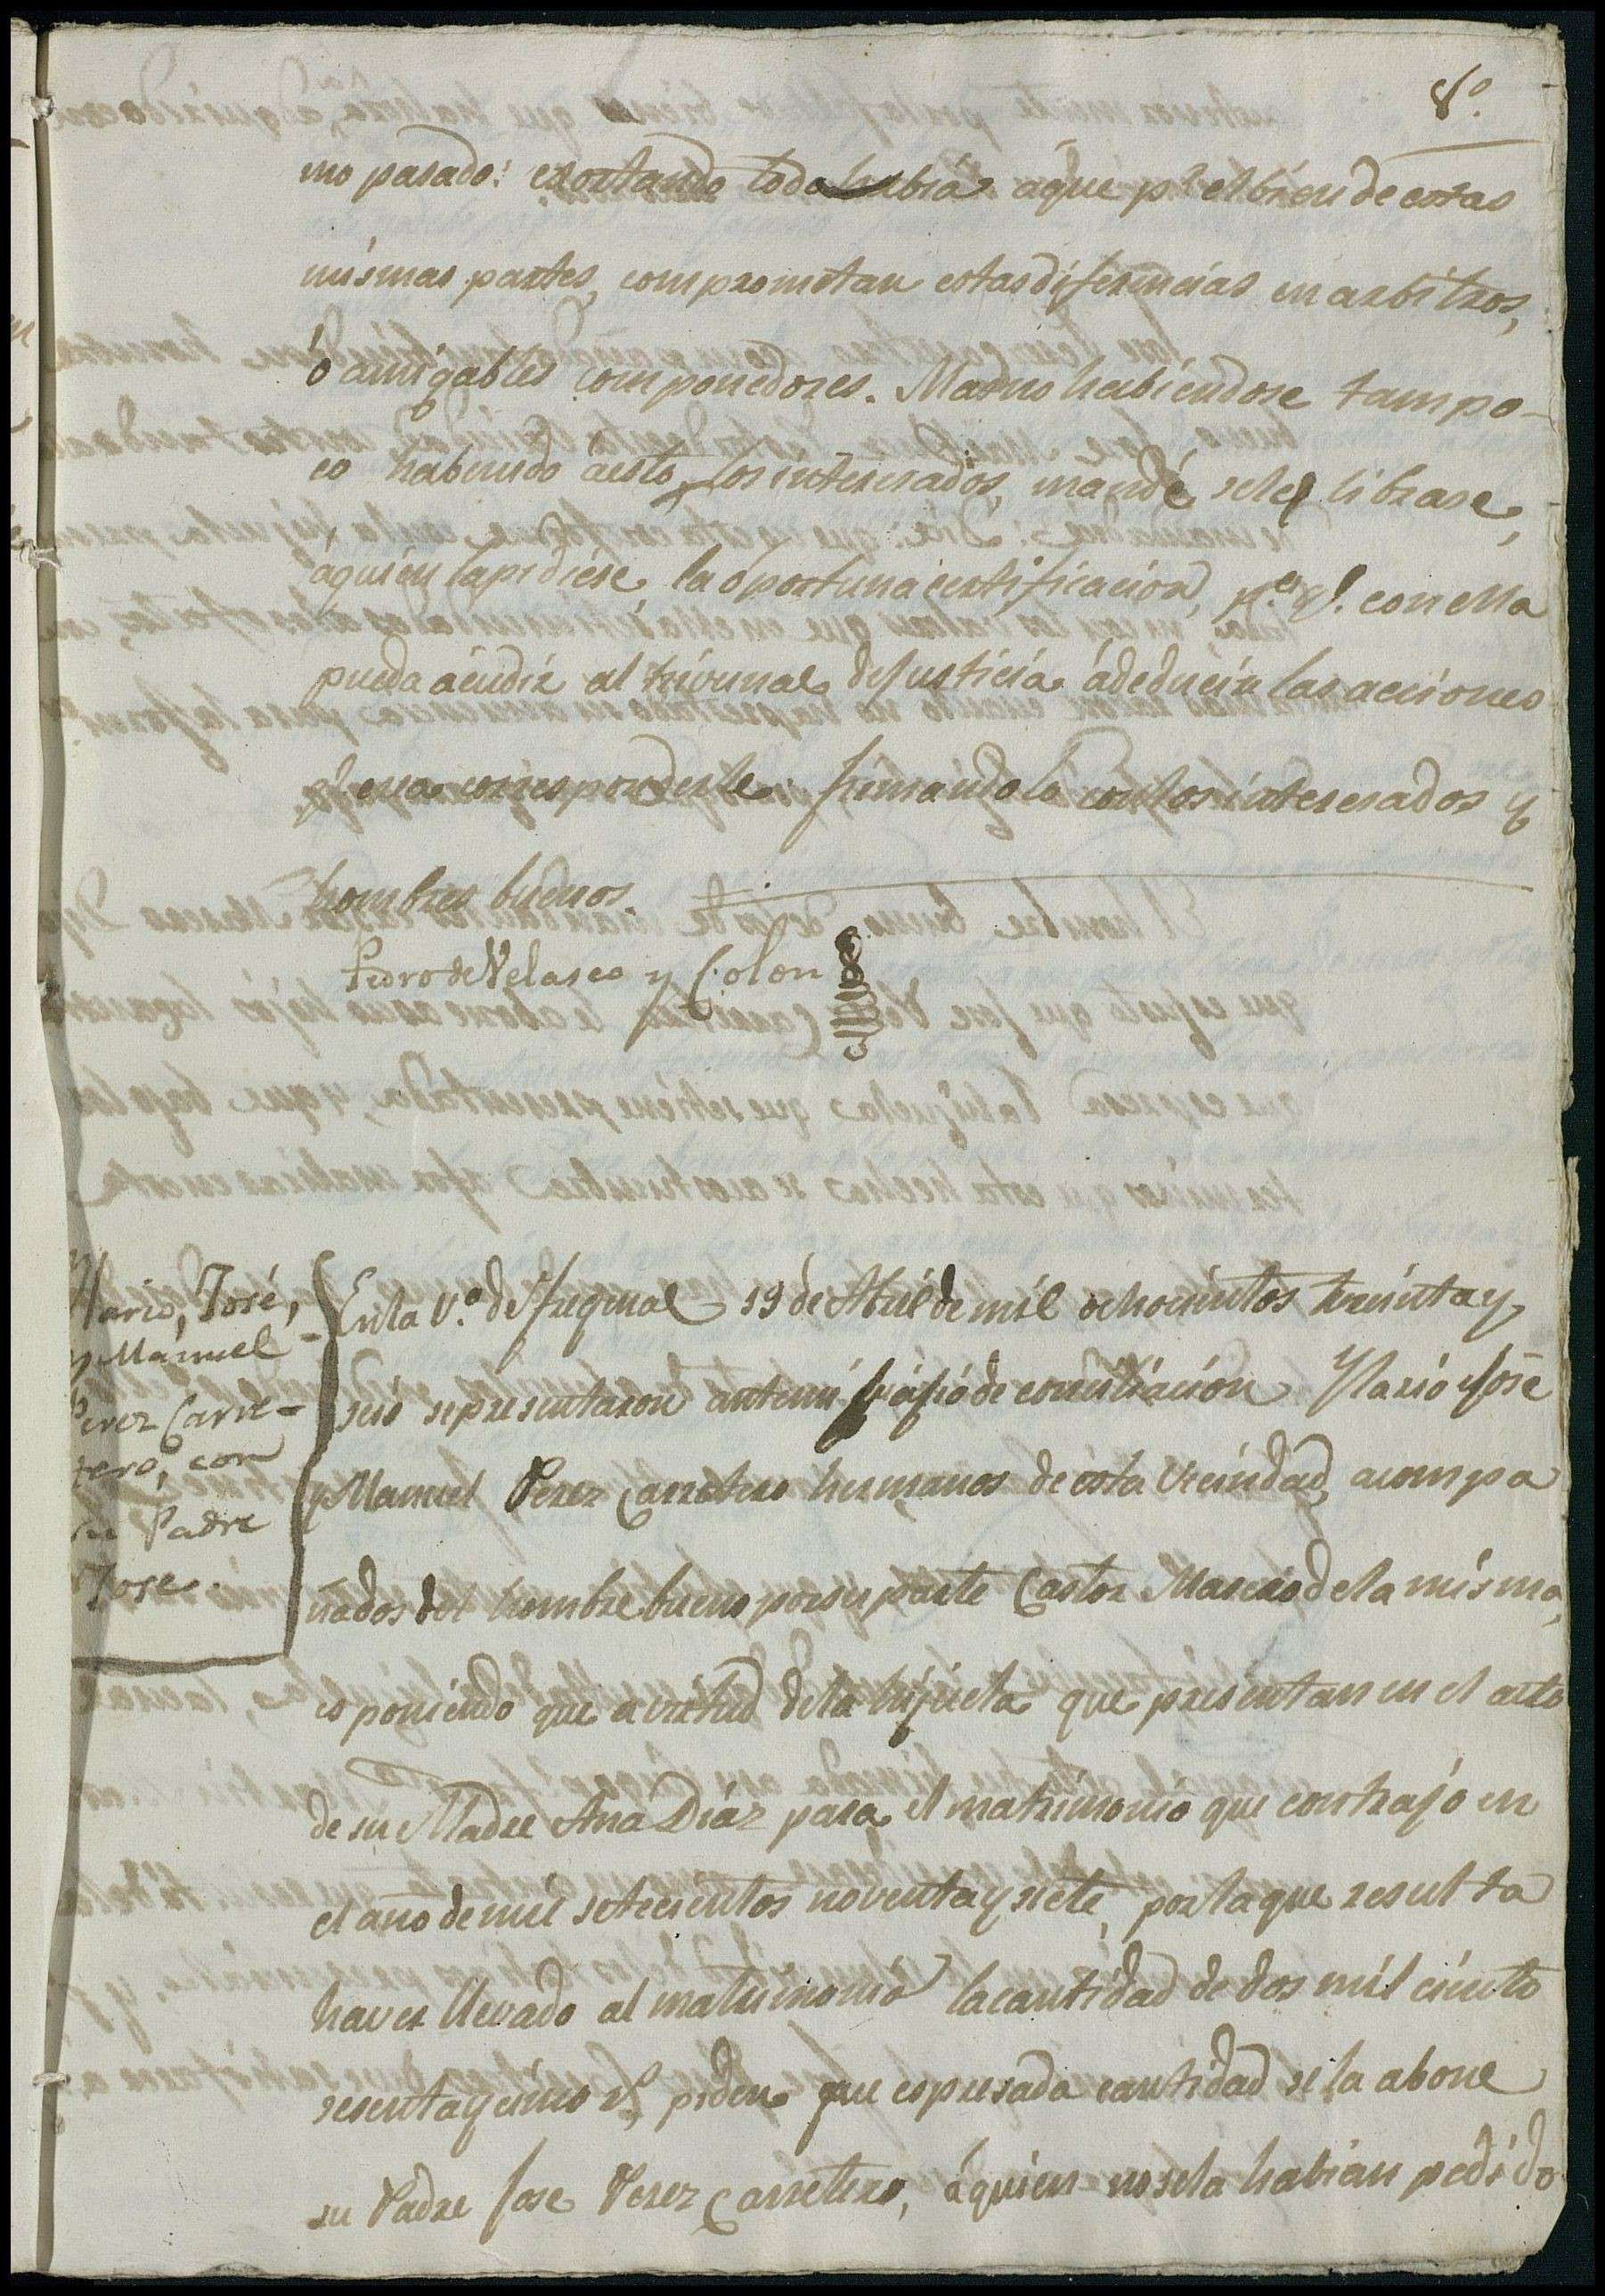 8º
mo pasado: exortando todahabia áque pr el bien de estas
mismas partes, comprometan estas diferencias en arbitros,
ó amigables componedores. Mas no habiendose tampo-
co habenido áesto, los interesados, mandé seles librase,
áquien lapidiese la oportuna certificacion, con ella
pueda acudir al trivunal de Justicia ádeducir las acciones
q.e crea corresponderle: firmandola con los interesados y
hombres buenos.
Pedro de Velasco y Colon
Ylario, José,
y Manuel
Perez Carre-
tero, con
su Padre
Jose.
En la V.a de Fregenal 19 de Abril de mil ochocientos treinta y
seis sepresentaron antemi juicio de conciliacion Ylario José
y Manuel Perez Carretero hermanos de esta Vecindad, acompa
ñados del hombre bueno por su parte Castor Maseso de la misma,
esponiendo que a virtud dela hijuela que presentan en el acto
de su Madre Ana Diaz para el matrimonio que contrajo en
el año de mil setecientos noventa y siete, por la que resulta
haver llevado al matrimonio la cantidad de dos mil ciento
sesenta y cinco rs, piden que espresada cantidad se la abone
su Padre Jose Perez Carretero, áquien nosela habian pedido